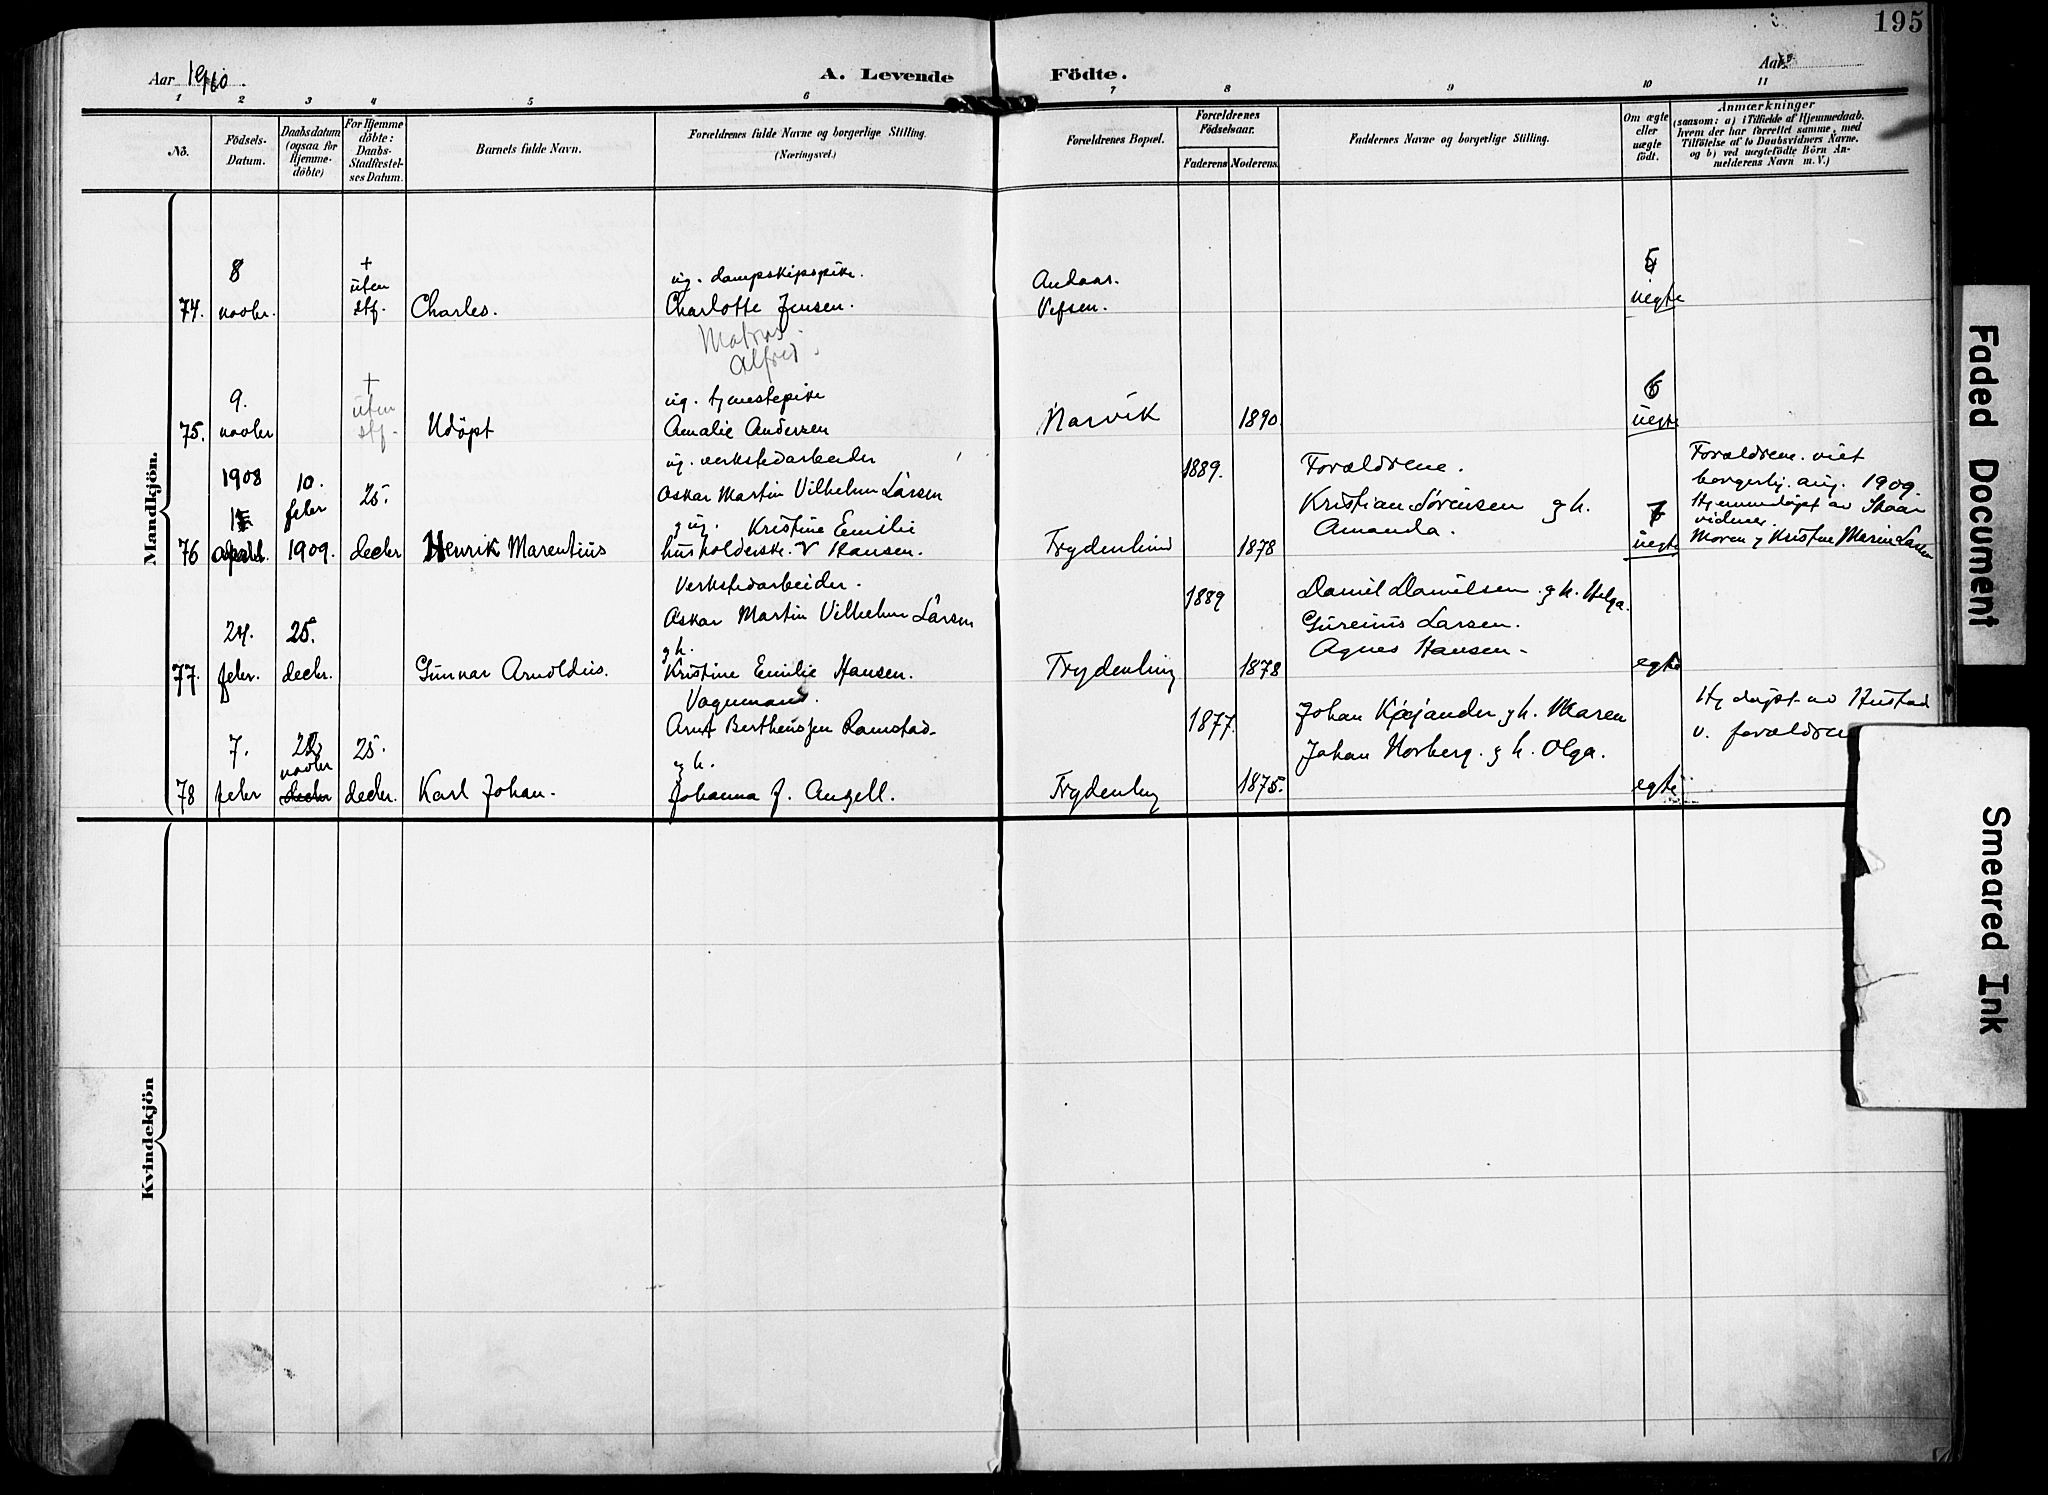 195
Aar 1910.
A. Levende Födte.
Aar
1 2 3 4 5 6 7 8 9 10 11
No.
Födsels-
Datum.
Daabsdatum
(ogsaa for
Hjemme-
döbte)
For Hjemme
döbte:
Daabs-
Stadfestel-
ses Datum.
Barnets fulde Navn.
Forældrenes fulde Navne og borgerlige Stilling.
(Næringsvei.)
Forældrenes Bopæl.
Forældrenes
Födselsaar.
Faderens
Moderens.
Faddernes Navne og borgerlige Stilling.
Om ægte
eller
uægte
födt.
Anmærkninger
(saasom: a) i Tilfælde af Hjemmedaab.
hvem der har forrettet samme, med
Tilföielse af to Daabsvidners Navne.
og b) ved uægtefödte Börn An-
melderens Navn m. V.)
Mandkjön.
74.
8
novbr.
+
uten
stf.
Charles.
ug. dampskipspike.
Charlotte Jensen.
Andaas.
Vefsen.
5
uegte
Alfred.
75.
9.
novbr
+
uten
stf.
Udöpt
ug. tjenestepike
Amalie Andersen
Narvik
1890.
6
uegte
76
1908
10.
febr
1909.
25.
decbr
Henrik Marentius
ug. verkstedarbeider
Oskar Martin Vilhelm Larsen
g ug. Kristine Emilie
husholderske. v Hansen.
Frydenlund
1889.
1878
Forældrene.
Kristian Sørensen g h.
Amanda.
7
uegte
Forældrene viet
borgerlig. aug. 1909.
Hjemmedöpt av Skaar
vidner.
Moren g Kristine Marie Larsen
77.
24.
febr.
25.
decbr.
Gunnar Arnoldus.
Verkstedarbeider.
Oskar Martin Vilhelm Larsen
g h.
Kristine Emilie Hansen.
Frydenlung
1889
1878
Daniel Danielsen g h. Helga.
Larsen.
Agnes Hansen
egte
78
7.
febr
novbr
decbr
25.
decbr.
Karl Johan.
Vognmand.
Arnt Bertheussen Ramstad.
g h.
Johanna J. Angell.
Frydenlung
1877.
1875.
Johan Kjejander g h. Maren
Johan Norberg. g h. Olga.
egte
Hj döpt av Hustad
v. forældrene
Kvindekjön
Faded Document
Smeared Ink